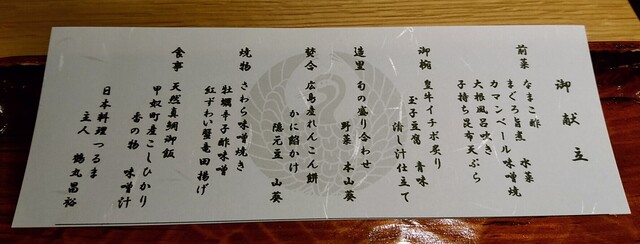 御献立
前菜 なまこ酢 水菜
まぐろ旨煮
カマンベール味噌焼
大根風呂吹き
子持ち昆布天ぷら
御椀 皇牛イチボ炙り
玉子豆腐 青味
清し汁仕立て
造里 旬の盛り合わせ
野菜 本山葵
焚合 広島産れんこん餅
かに餡かけ
隠元豆 山葵
焼物 さわら味噌焼き
牡蠣辛子酢味噌
紅ずわい蟹竜田揚げ
食事 天然真鯛御飯
甲奴町産こしひかり
香の物 味噌汁
日本料理つるま
主人 鶴丸昌裕